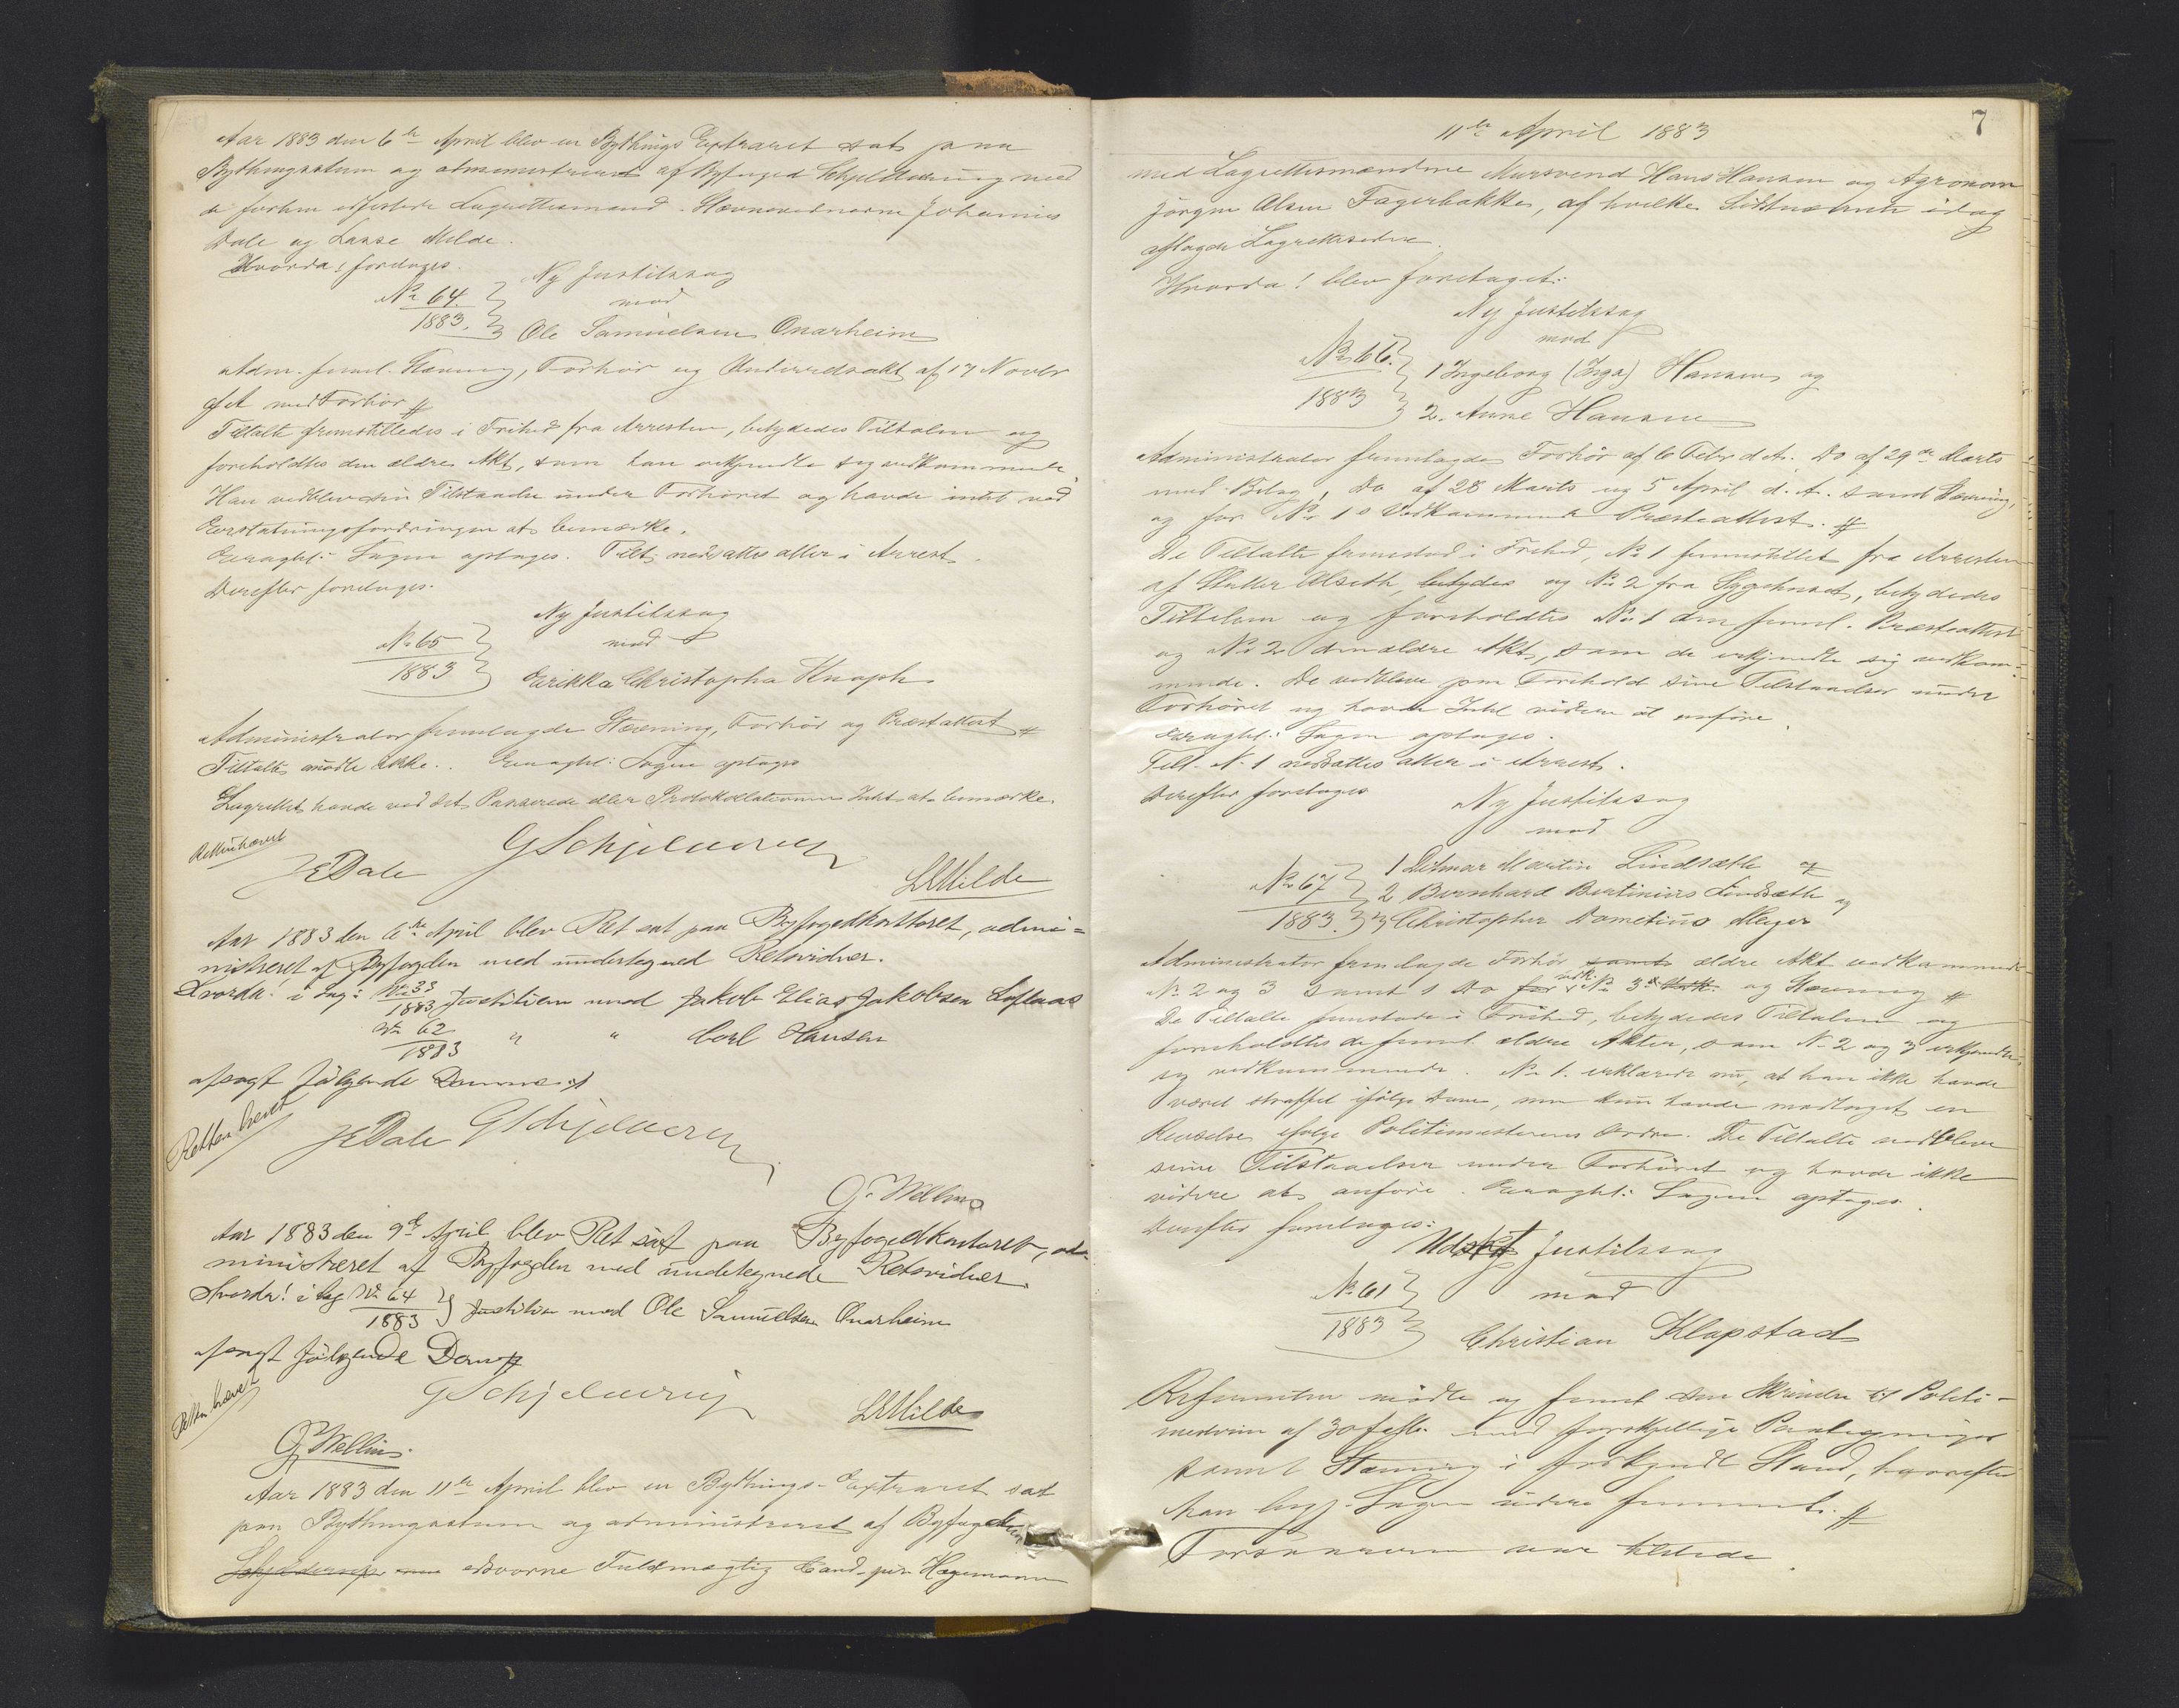 Aar 1883 den 6te April blev en Bythings Extraret sat paa
Bythingsstuen og administreret af Byfoged Schjelderup med
de forhen edfæstede Laugrettesmænd Stævnevidnerne Johannes
Dale og Lasse Milde.
Hvorda! foretages.
Ny Justitssag
No 64. mod
1883. Ole Samuelsen Onarheim
Adm. freml. Stævning, Forhør og Underretsakt af 17 Novbr
med Forhør #
Tiltalte fremstilledes i Frihed fra Arresten, betydedes Tiltalen og
foreholdtes den ældre Akt, som han erkjendte sig vedkommende
Han vedblev sin Tilstaaelse under Forhøret og havde intet ved
Erstatningsfordringen at bemærke.
Eragtet: Sagen optages. Tilt. nedsattes atter i Arrest.
Derefter foretages.
Ny Justitssag
No 65 mod
1883 Erikka Christopha Knoph
Administrator fremlagde Stævning, Forhør og Præsteattest #
Tiltalte mødte ikke. Eragtet: Sagen optages
Lagrettet havde ved det Passerede eller Protokollationen Intet at bemærke.
Retten hævet
GSchjelderup
JEDale
LLMilde
Aar 1883 den 6te April blev Ret sat paa Byfogedkontoret, admi=
nistreret af Byfogden med undertegnede Retsvidner.
Hvorda! i Sag: No 33
1883 Justitien mod Jakob Elias Jakobsen Loftaas
No 62
1883 " " Carl Hansen
afsagt følgende Domme #
Retten hævet
JEDale GSchjelderup
G. Wellin
Aar 1883 den 9de April blev Ret sat paa Byfogedkontoret, ad-
ministreret af Byfogden med undertegnede Retsvidner.
Hvorda! i Sag No 64
1883 Justitien mod Ole Samuelsen Onarheim
afsagt følgende Dom #
Retten hævet
GSchjelderup
LLMilde
G. Wellin
Aar 1883 den 11te April blev en Bythings-Extraret sat
paa Bythingsstuen og administreret af Byfogdens
Schjelderup edsvorne Fuldmægtig Cand. jur. Hagemann
7
11te April 1883
med Lagrettesmændene Mursvend Hans Hansen og Agronom
Jørgen Olsen Fagerbakke, af hvilke Sidstnævnte idag
aflagde Lagretteseden.
Hvorda! blev foretaget:
Ny Justitssag
mod
No 66. 1 Ingeborg (Inga) Hansen og
1883 2. Anne Hansen
Administrator fremlagde Forhør af 6 Febr d. A. Do af 29de Marts
med Bilag, Do af 28 Marts og 5 April d. A. samt Stævning,
og for No 1s Vedkommende Præsteattest. #
De Tiltalte fremstod i Frihed, No 1 fremstillet fra Arresten
af Slutter Alseth, betydes og No 2 fra Sygehuset, betydedes
Tiltalen og foreholdtes No 1 den freml. Præsteattest
og No 2 den ældre Akt, som de erkjendte sig vedkom-
mende. De vedbleve paa Forehold sine Tilstaaelser under
Forhøret og havde Intet videre at anføre.
Eragtet: Sagen optages.
Tilt. No 1 nedsattes atter i Arrest.
Derefter foretages
Ny Justitssag
mod
1 Ditmar Martin Lindsæth og
No 67 2 Bernhard Bertinius Lindsæth og
1883. 3 Christopher Dometius Meyer
Administrator fremlagde Forhør samt ældre Akt vedkommende
No 2 og 3 samt 1 Do for vedk. No 3 og Stævning #
De Tiltalte fremstode i Frihed, betydedes Tiltalen og
foreholdtes de freml. ældre Akter, som No 2 og 3 erkjendte
sig vedkommende. No 1. erklærede nu, at han ikke havde
været straffet ifølge Dom, men kun havde modtaget en
Revselse ifølge Politimesterens Ordre. De Tiltalte vedbleve
sine Tilstaaelser under Forhøret og havde ikke
videre at anføre. Eragtet: Sagen optages.
Derefter foretages:
Udsat Justitssag
No 61 mod
1883 Christian Klopstad
Referenten mødte og freml. den Skrivelse til Politi-
mesteren af 30 f. M. med forskjellige Paategninger
samt Stævning i forkyndt Stand, hvorefter
han Sagen videre fremmet. #
Forsvareren var tilstede.